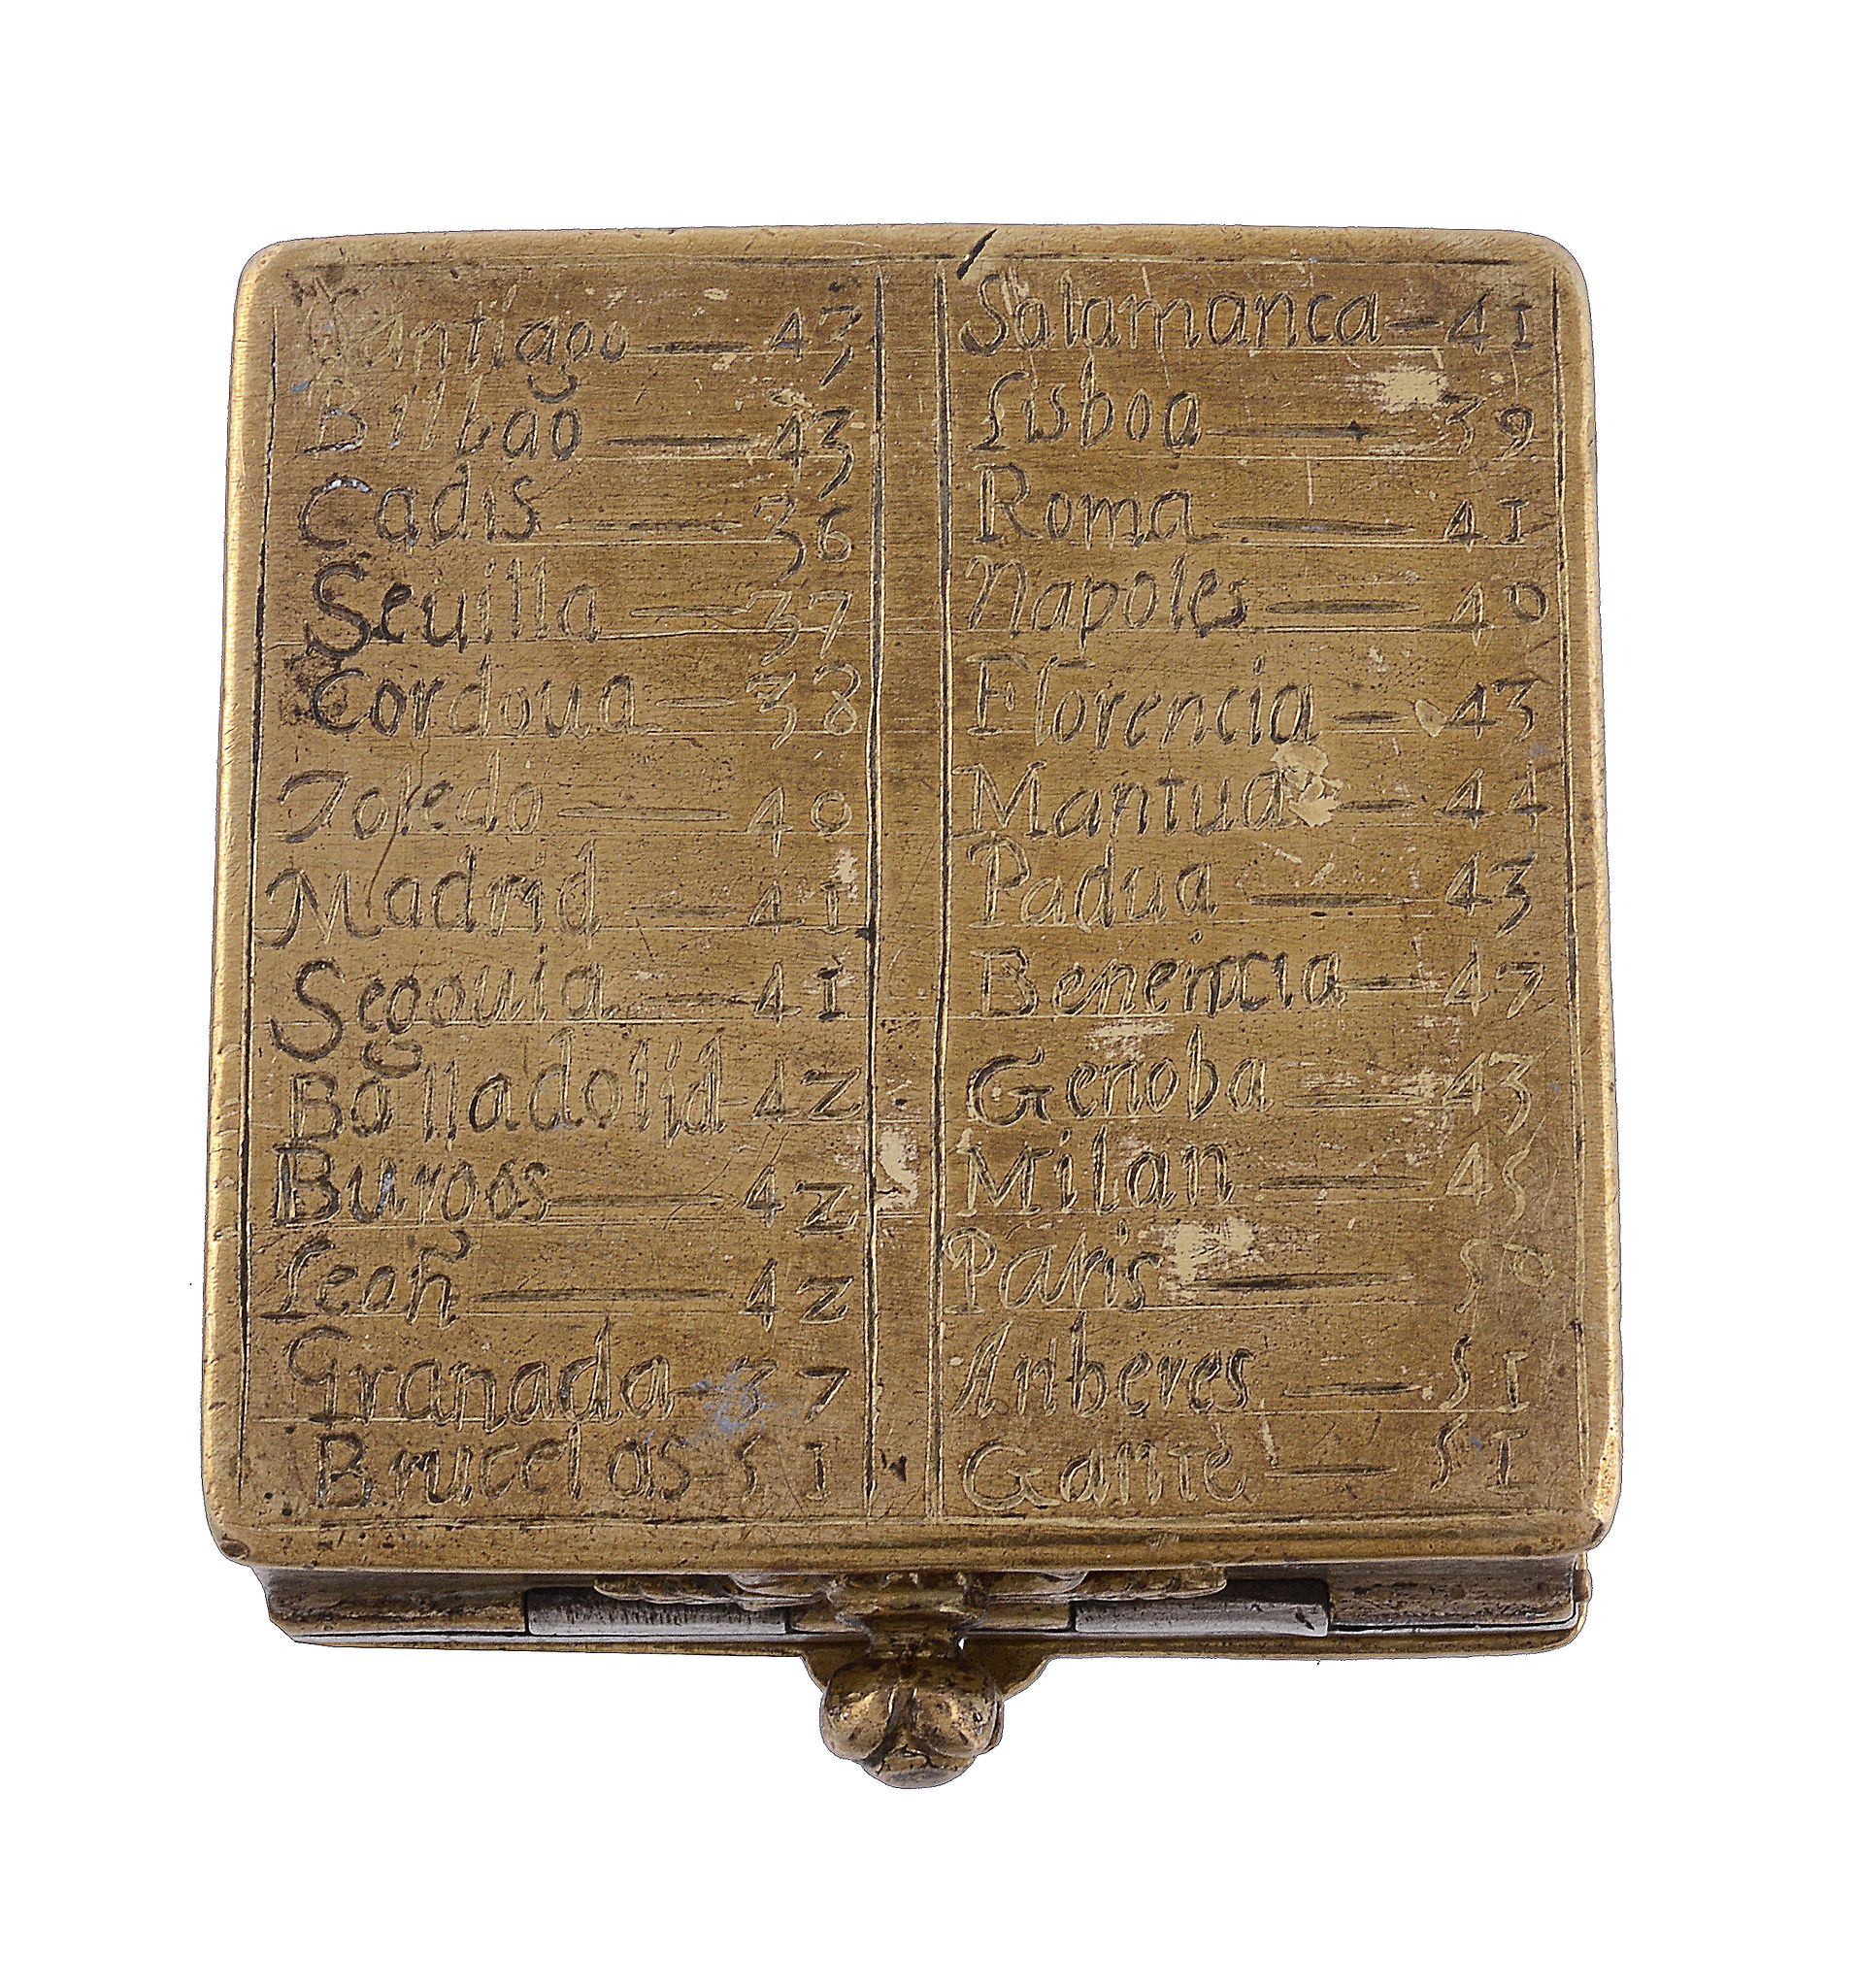 Santiago — 43
Bilbao — 43
Cadis — 36
Seuilla — 37
Cordoua — 38
Toledo — 40
Madrid — 41
Segouia — 41
Balladolid — 42
Burgos — 42
Leon — 42
Granada — 37
Brucelas — 51
Salamanca — 41
Lisboa — 39
Roma — 41
Napoles — 40
Florencia — 43
Mantua — 44
Padua — 43
47
Genoba — 43
Milan — 45
Paris — 50
Anberes — 51
Gante — 51